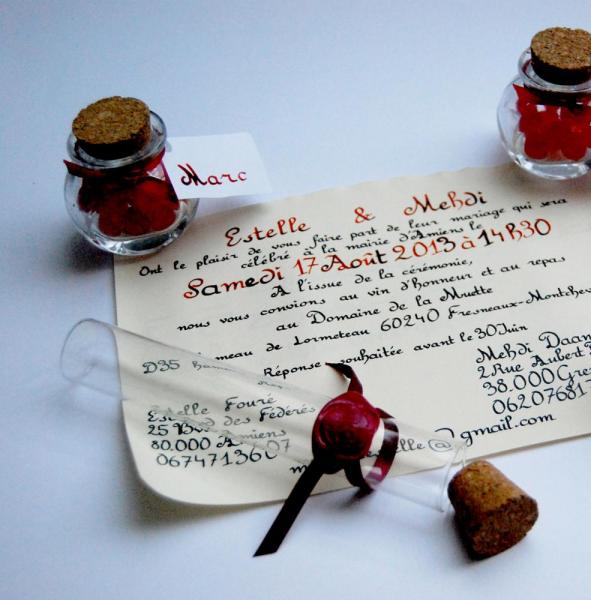 Marc
Estelle & Mehdi
Ont le plaisir de vous faire part de leur mariage qui sera
célébré à la mairie d'Amiens le
Samedi 17 Août 2013 à 14h30
A l'issue de la cérémonie,
nous vous convions au vin d'honneur et au repas
au Domaine de la Muette
D35 Hameau de Lormeteau 60240 Fresneaux-Montchev
Réponse souhaitée avant le 30 Juin
Estelle Fouré
25 des Fédérés
80.000 Amiens
Mehdi Daan
2 Rue Aubert
38.000 Gre
06207681
@gmail.com